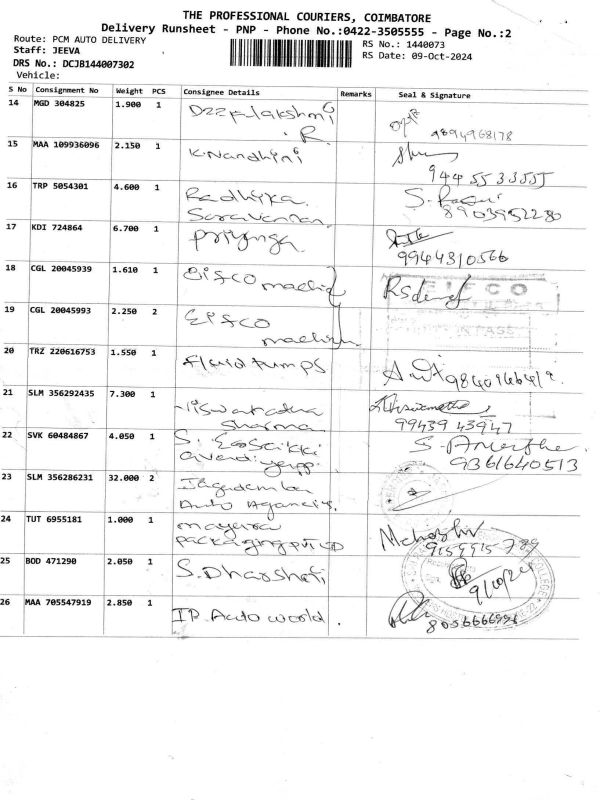 THE PROFESSIONAL COURIERS, COIMBATORE
Delivery Runsheet - PNP - Phone No.:0422-3505555 - Page No.:2
Route: PCM AUTO DELIVERY
RS No.: 1440073
Staff: JEEVA
RS Date: 09-Oct-2024
DRS No.: DCJB144007302
Vehicle:
S No Consignment No Weight PCS Consignee Details Remarks Seal & Signature
14 MGD 304825 1.900 1 Deepalakshmi
. R. 9894968178
15 MAA 109936096 2.150 1 K. Nandhini
9445533555
16 TRP 5054301 4.600 1 Radhika
Saravanan. 8903952280
17 KDI 724864 6.700 1 Priyanga.
9944310566
18 CGL 20045939 1.610 1 Eifco
EIFCO
19 CGL 20045993 2.250 2 Eifco
PASS
20 TRZ 220616753 1.550 1 Fluid Pumps
21 SLM 356292435 7.300 1
Sharma 99439 43947
22 SVK 60484867 4.050 1 S.
9361640513
23 SLM 356286231 32.000 2
Auto
24 TUT 6955181 1.000 1
Packaging Pvt Ltd
25 BOD 471290 2.050 1 S. Dharshini
9/10/24
26 MAA 705547919 2.850 1 IP Auto world.